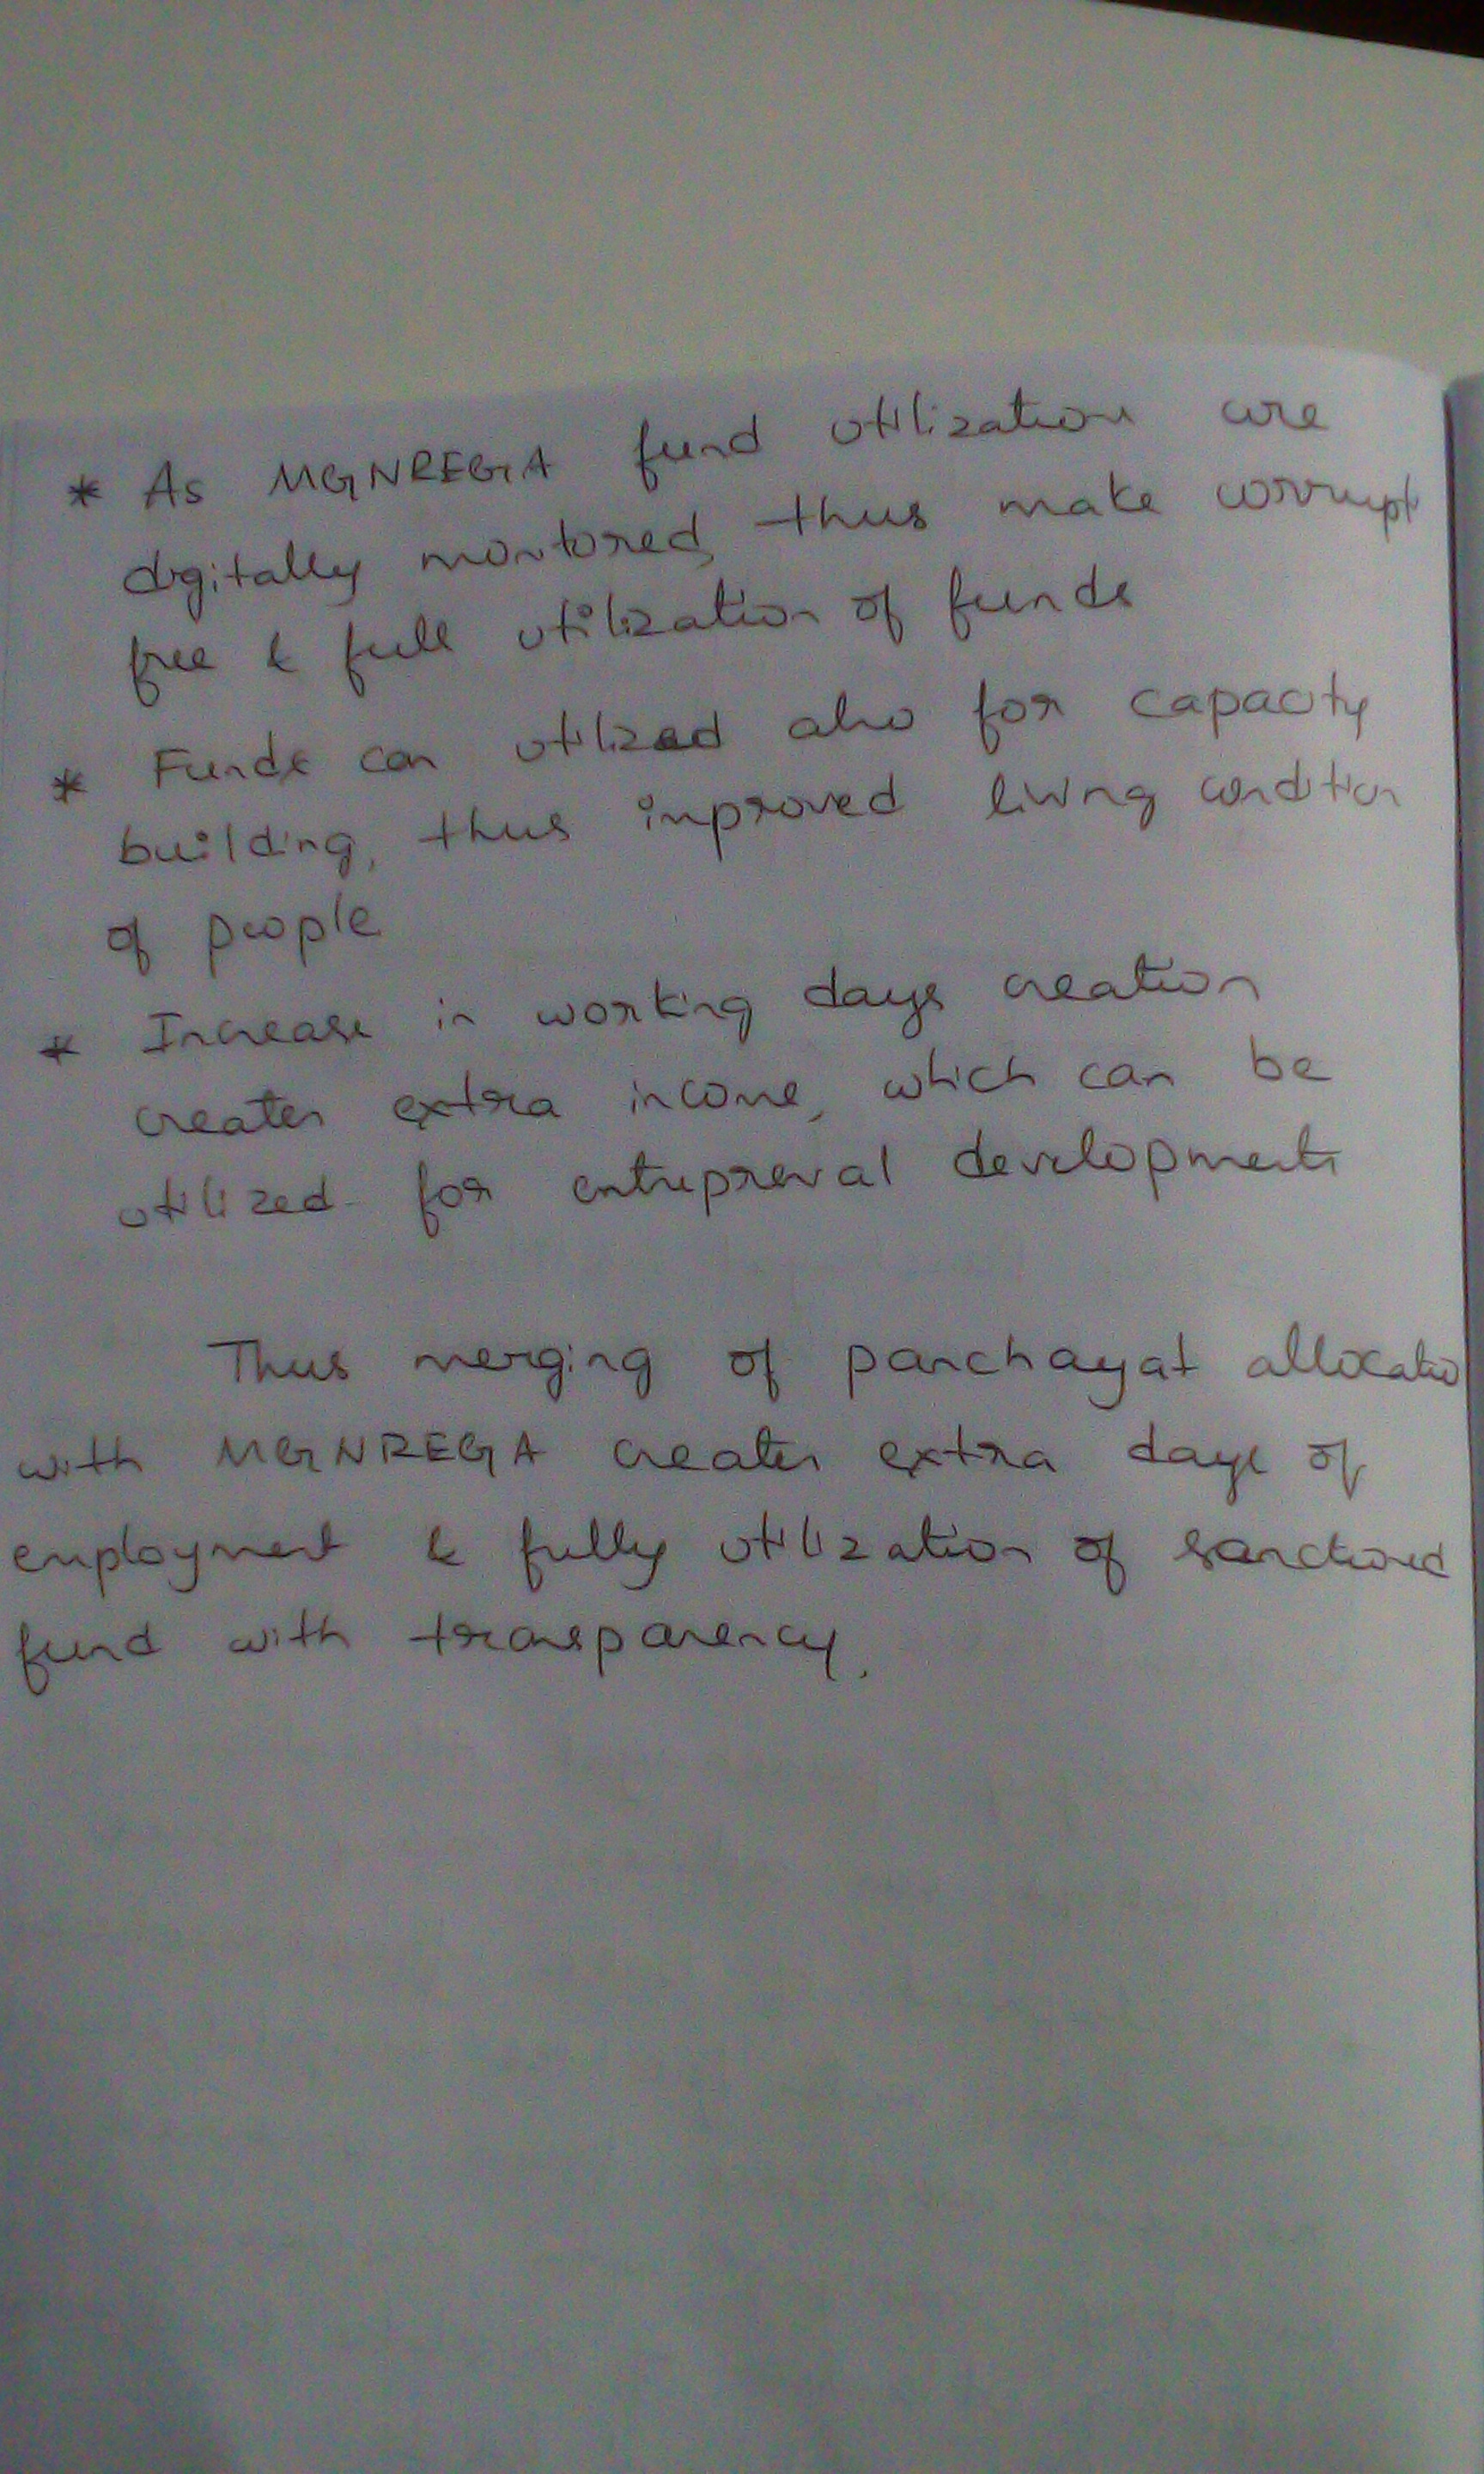 * As MGNREGA fund utilization are
digitally monitored, thus make corrupt
free & full utilization of funds
* Funds can utilized also for capacity
building, thus improved living condition
of people
* Increase in working days creation
creates extra income, which can be
utilized for entreprenal developments
Thus merging of panchayat allocatio
with MGNREGA creates extra days of
employment & fully utilization of sanctioned
fund with transparency.